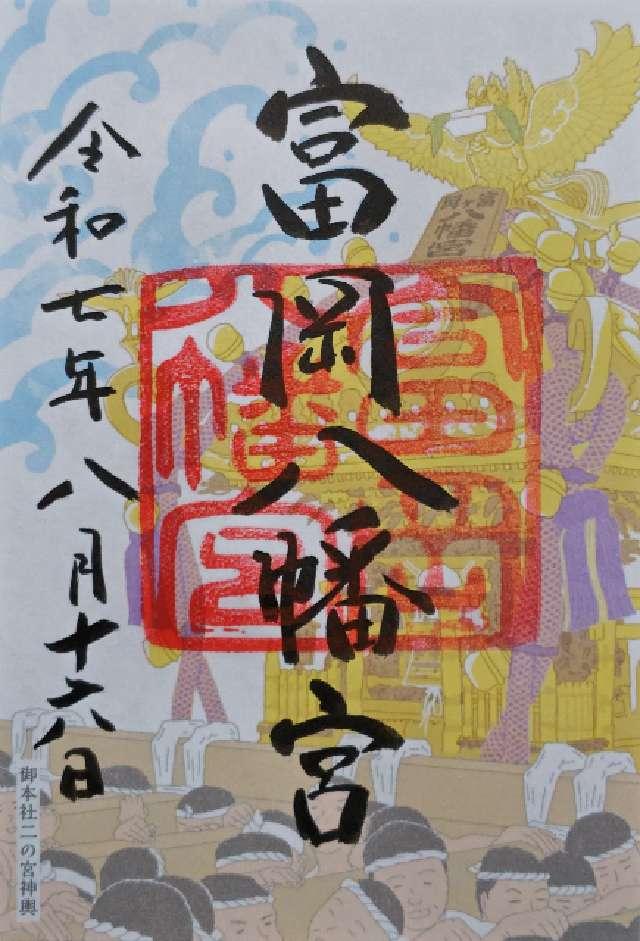 富岡八幡宮
令和七年八月十六日
富ヶ岡
八幡宮
御本社二の宮神輿